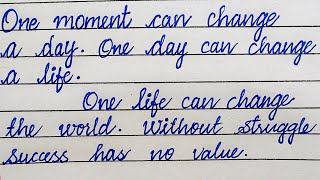 One moment can change
a day. One day can change
a life.
One life can change
the world. Without struggle
success has no value.